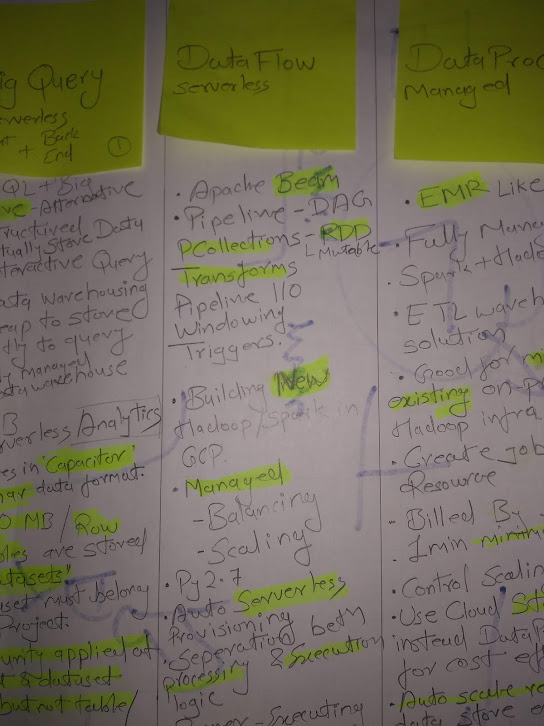 ig Query
erverless
+ Back
End
1
QL + Big
ve - Alternative
ructured
tually Store Data
teractive Query
ata warehousing
eap to stored
tly to query
managed
ata warehouse
B
verless Analytics
es in "Capacitor"
nar data format.
0 MB / Row
bles are stored
atasets"
aset must belong
Project.
urity applied at
t & dataset
but not table/
DataFlow
Serverless
• Apache Beam
• Pipeline - DAG
PCollections - RDD
Mutable
Transforms
Pipeline I/O
Windowing
Triggers.
• Building New
Hadoop/Spark in
GCP.
• Managed
- Balancing
- Scaling
• Py 2.7
• Auto Serverless
Provisioning
• Seperation betn
processing & Execution
logic
- Executing
DataProc
Managed
• EMR Like
• Fully Mana
Spark + Hado
• ETL wareh
solution
• Good for mi
existing on-p
Hadoop infra
• Create Job
Resource
- Billed By
- 1min minim
• Control Scalin
• Use Cloud
instead DataP
for cost eff
• Auto scale
data store